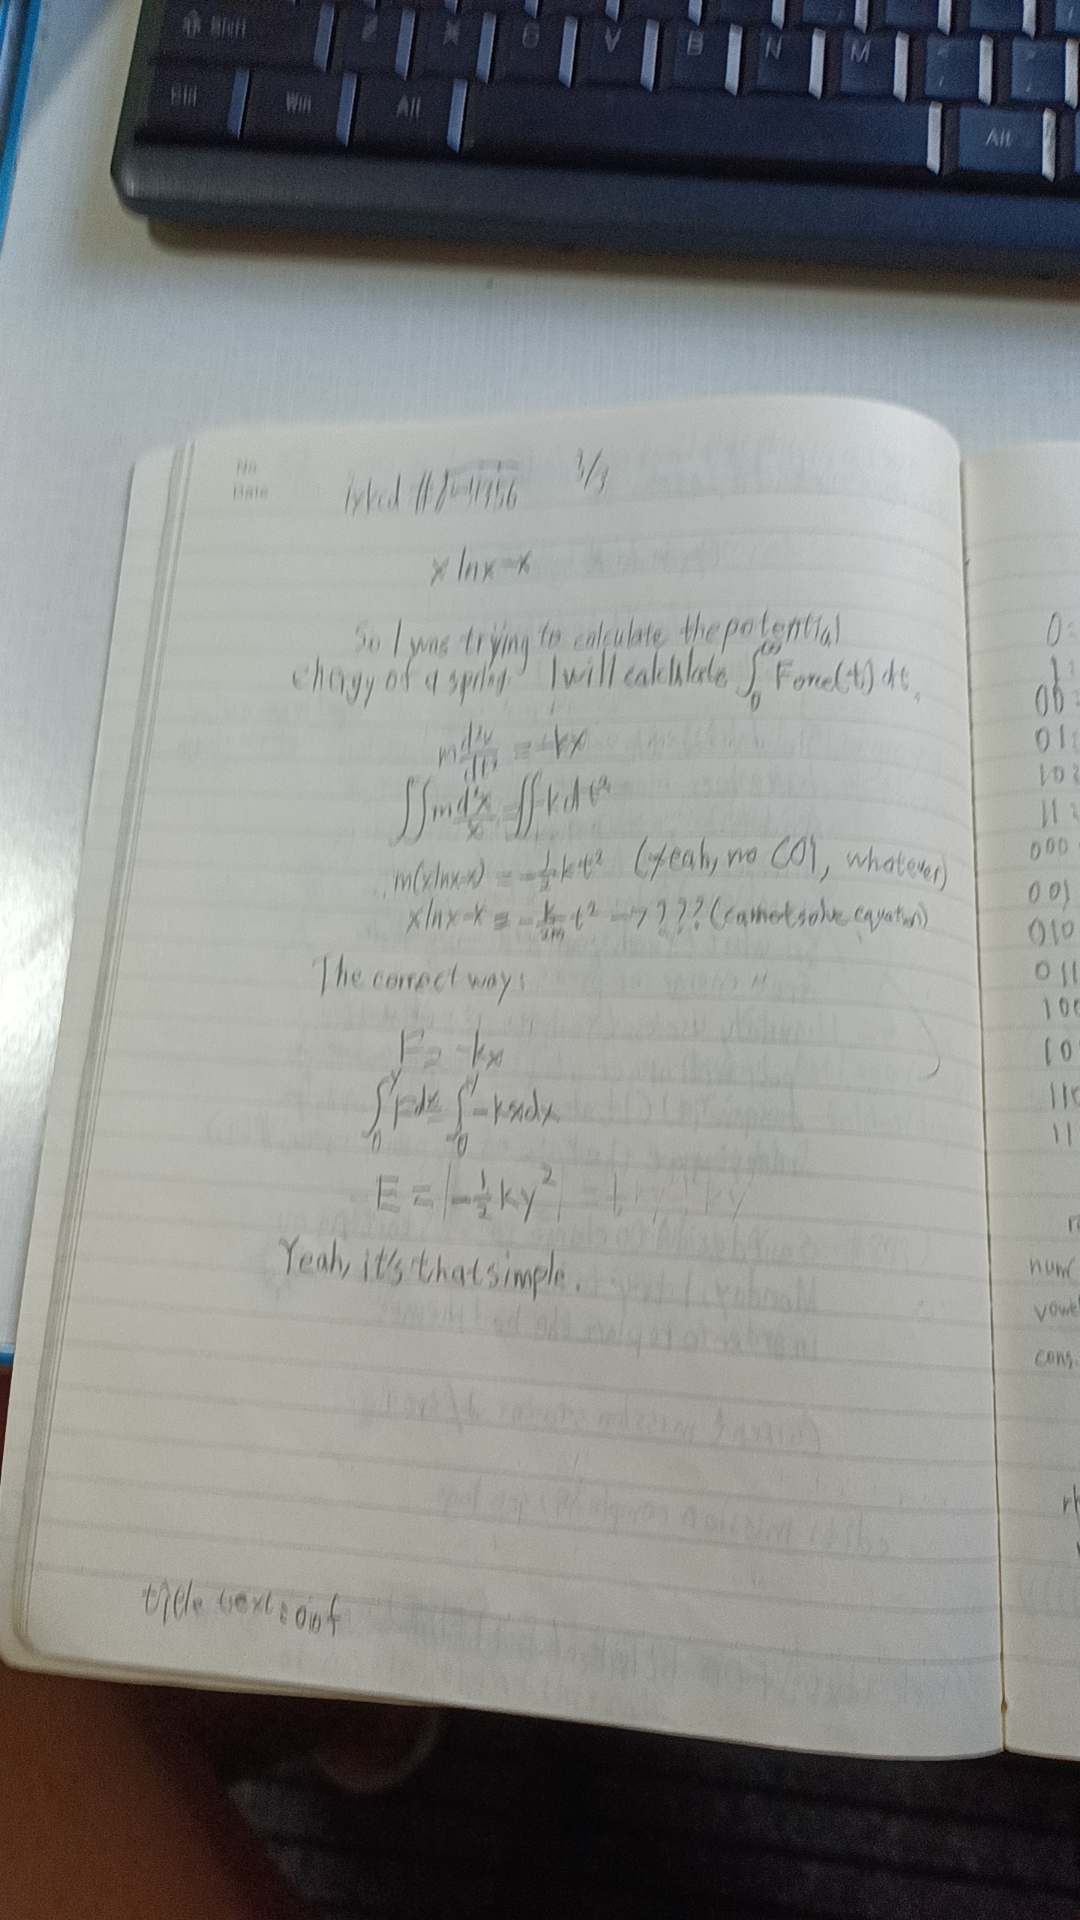 Shift Z X C V B N M
Win Alt Alt
No.
Date
1xkcd # 3/3
x lnx-x
So I was trying to calculate the potential
energy of a spring. I will calculate ∫ Force(t) dt.
0
= -kx
∫∫m d²x/x = ∫∫-k dt²
m(xlnx-x) = -1/2 kt² (yeah, no COI, whatever)
xlnx-x = -k/2m t² -> ??? (cannot solve equation)
The correct way:
F = -kx
∫₀ʸ Fdx = ∫₀ʸ -kxdx
E = |-1/2 ky²| =
Yeah, it's that simple.
title text: oof
0=
1:
00:
01:
10:
11:
000
001
010
011
100
101
110
111
num(
vowel
cons.